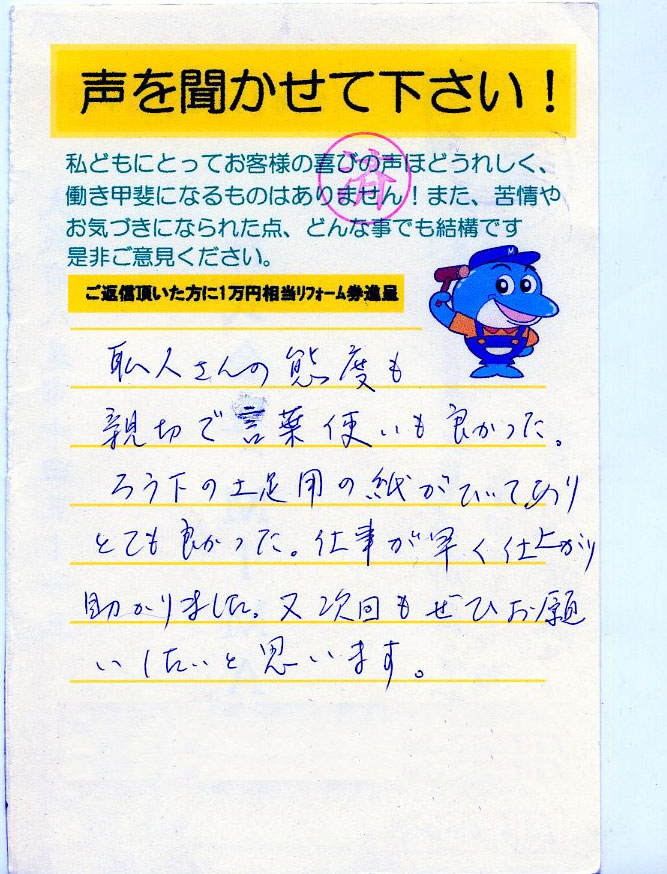 声を聞かせて下さい！
私どもにとってお客様の喜びの声ほどうれしく、
働き甲斐になるものはありません！また、苦情や
お気づきになられた点、どんな事でも結構です
是非ご意見ください。
済
M
ご返信頂いた方に1万円相当リフォーム券進呈
職人さんの態度も
親切で言葉使いも良かった。
ろう下の土足用の紙がひいてあり
とても良かった。仕事が早く仕上がり
助かりました。又次回もぜひお願
いしたいと思います。